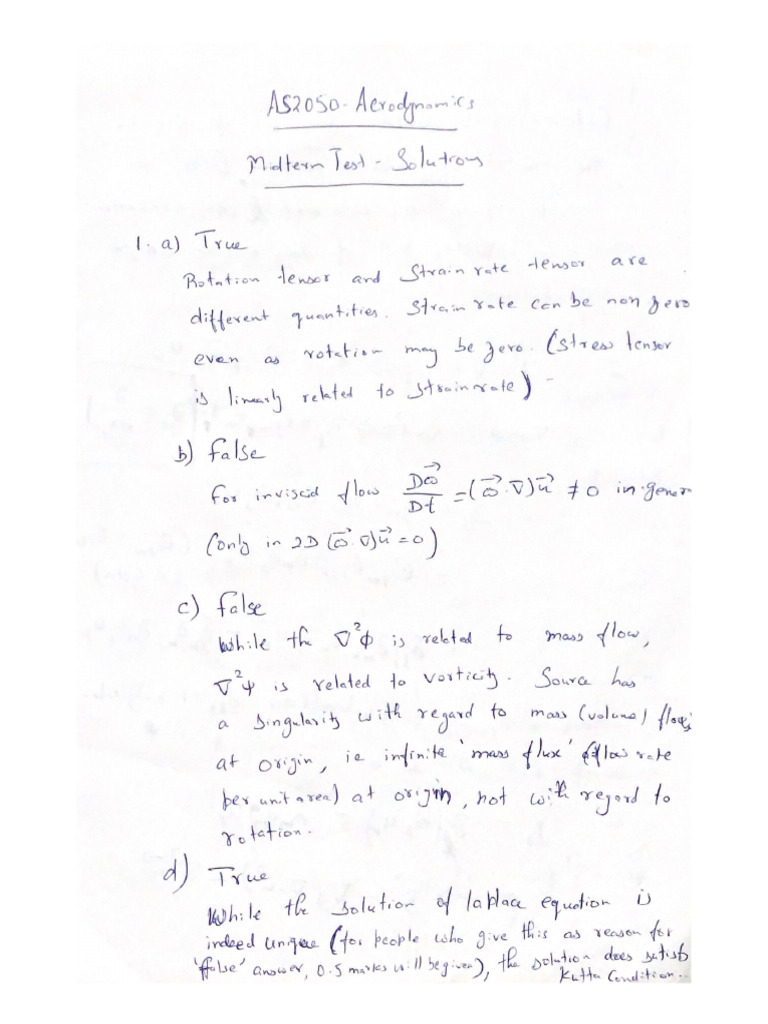 AS2050-Aerodynamics
Midterm Test - Solutions
1. a) True
Rotation tensor and Strain rate tensor are
different quantities. Strain rate can be non zero
even as rotation may be zero. (Stress tensor
is linearly related to strain rate)
b) False
For inviscid flow Dω⃗/Dt = (ω⃗.∇)u⃗ ≠ 0 in gener
(Only in 2D (ω⃗.∇)u⃗ = 0)
c) False
While the ∇²φ is related to mass flow,
∇²ψ is related to vorticity. Source has
a singularity with regard to mass (volume) flow,
at origin, ie infinite 'mass flux' (flow rate
per unit area) at origin, not with regard to
rotation.
d) True
While the solution of laplace equation is
indeed unique (for people who give this as reason for
'false' answer, 0.5 marks will be given), the solution does satisfy
Kutta Condition.